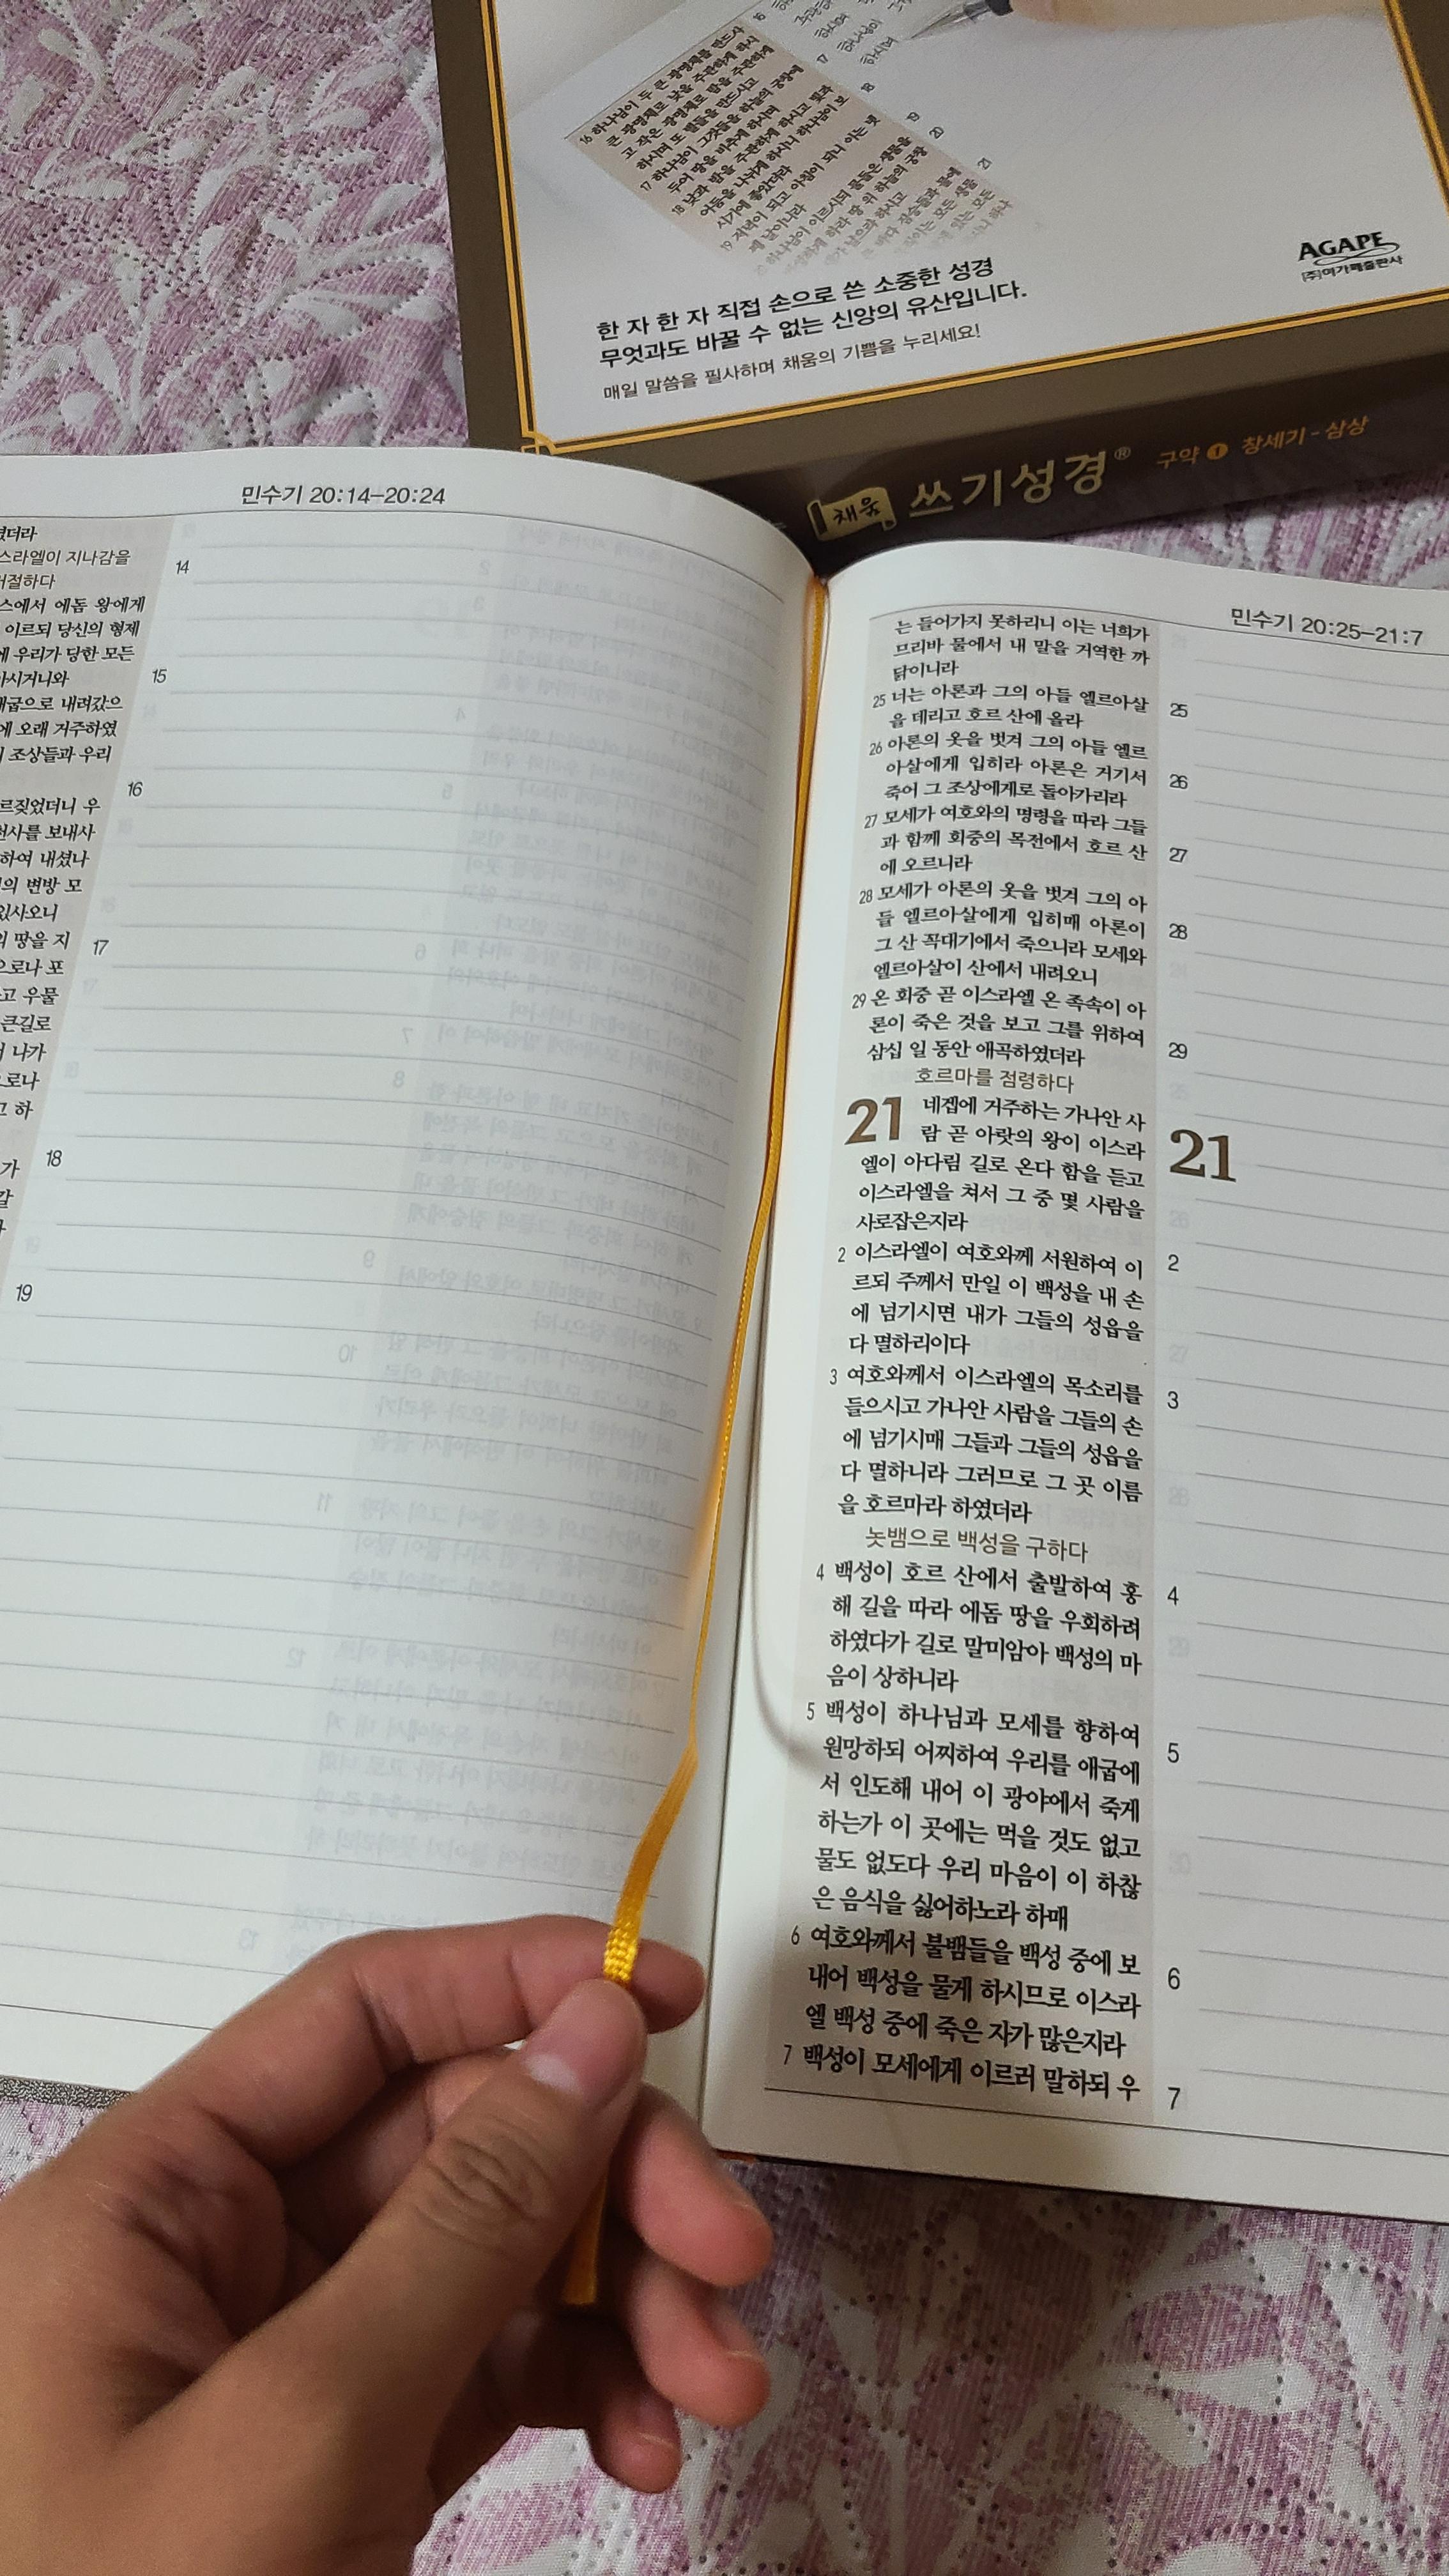 16 하나님이 두 큰 광명체를 만드사
큰 광명체로 낮을 주관하게 하시
고 작은 광명체로 밤을 주관하게
하시며 또 별들을 만드시고
17 하나님이 그것들을 하늘의 궁창에
두어 땅을 비추게 하시며
18 낮과 밤을 주관하게 하시고 빛과
어둠을 나뉘게 하시니 하나님이 보
시기에 좋았더라
19 저녁이 되고 아침이 되니 이는 넷
째 날이니라
하나님이 이르시되 물들은 생물을
하늘의 궁창
16
17
하나님이
하시며
18
19
20
21
AGAPE
(주)아가페출판사
한 자 한 자 직접 손으로 쓴 소중한 성경
무엇과도 바꿀 수 없는 신앙의 유산입니다.
매일 말씀을 필사하며 채움의 기쁨을 누리세요!
채움 쓰기성경® 구약 1 창세기 - 삼상
민수기 20:14-20:24
였더라
스라엘이 지나감을
거절하다
스에서 에돔 왕에게
이르되 당신의 형제
에 우리가 당한 모든
아시거니와
애굽으로 내려갔으
에 오래 거주하였
조상들과 우리
르짖었더니 우
천사를 보내사
하여 내셨나
의 변방 모
있사오니
의 땅을 지
으로나 포
고 우물
큰길로
나가
로나
고 하
가
갈
14
15
16
17
18
19
민수기 20:25-21:7
는 들어가지 못하리니 이는 너희가
므리바 물에서 내 말을 거역한 까
닭이니라
25 너는 아론과 그의 아들 엘르아살
을 데리고 호르 산에 올라
26 아론의 옷을 벗겨 그의 아들 엘르
아살에게 입히라 아론은 거기서
죽어 그 조상에게로 돌아가리라
27 모세가 여호와의 명령을 따라 그들
과 함께 회중의 목전에서 호르 산
에 오르니라
28 모세가 아론의 옷을 벗겨 그의 아
들 엘르아살에게 입히매 아론이
그 산 꼭대기에서 죽으니라 모세와
엘르아살이 산에서 내려오니
29 온 회중 곧 이스라엘 온 족속이 아
론이 죽은 것을 보고 그를 위하여
삼십 일 동안 애곡하였더라
호르마를 점령하다
21 네겝에 거주하는 가나안 사
람 곧 아랏의 왕이 이스라
엘이 아다림 길로 온다 함을 듣고
이스라엘을 쳐서 그 중 몇 사람을
사로잡은지라
2 이스라엘이 여호와께 서원하여 이
르되 주께서 만일 이 백성을 내 손
에 넘기시면 내가 그들의 성읍을
다 멸하리이다
3 여호와께서 이스라엘의 목소리를
들으시고 가나안 사람을 그들의 손
에 넘기시매 그들과 그들의 성읍을
다 멸하니라 그러므로 그 곳 이름
을 호르마라 하였더라
놋뱀으로 백성을 구하다
4 백성이 호르 산에서 출발하여 홍
해 길을 따라 에돔 땅을 우회하려
하였다가 길로 말미암아 백성의 마
음이 상하니라
5 백성이 하나님과 모세를 향하여
원망하되 어찌하여 우리를 애굽에
서 인도해 내어 이 광야에서 죽게
하는가 이 곳에는 먹을 것도 없고
물도 없도다 우리 마음이 이 하찮
은 음식을 싫어하노라 하매
6 여호와께서 불뱀들을 백성 중에 보
내어 백성을 물게 하시므로 이스라
엘 백성 중에 죽은 자가 많은지라
7 백성이 모세에게 이르러 말하되 우
25
26
27
28
29
21
2
3
4
5
6
7